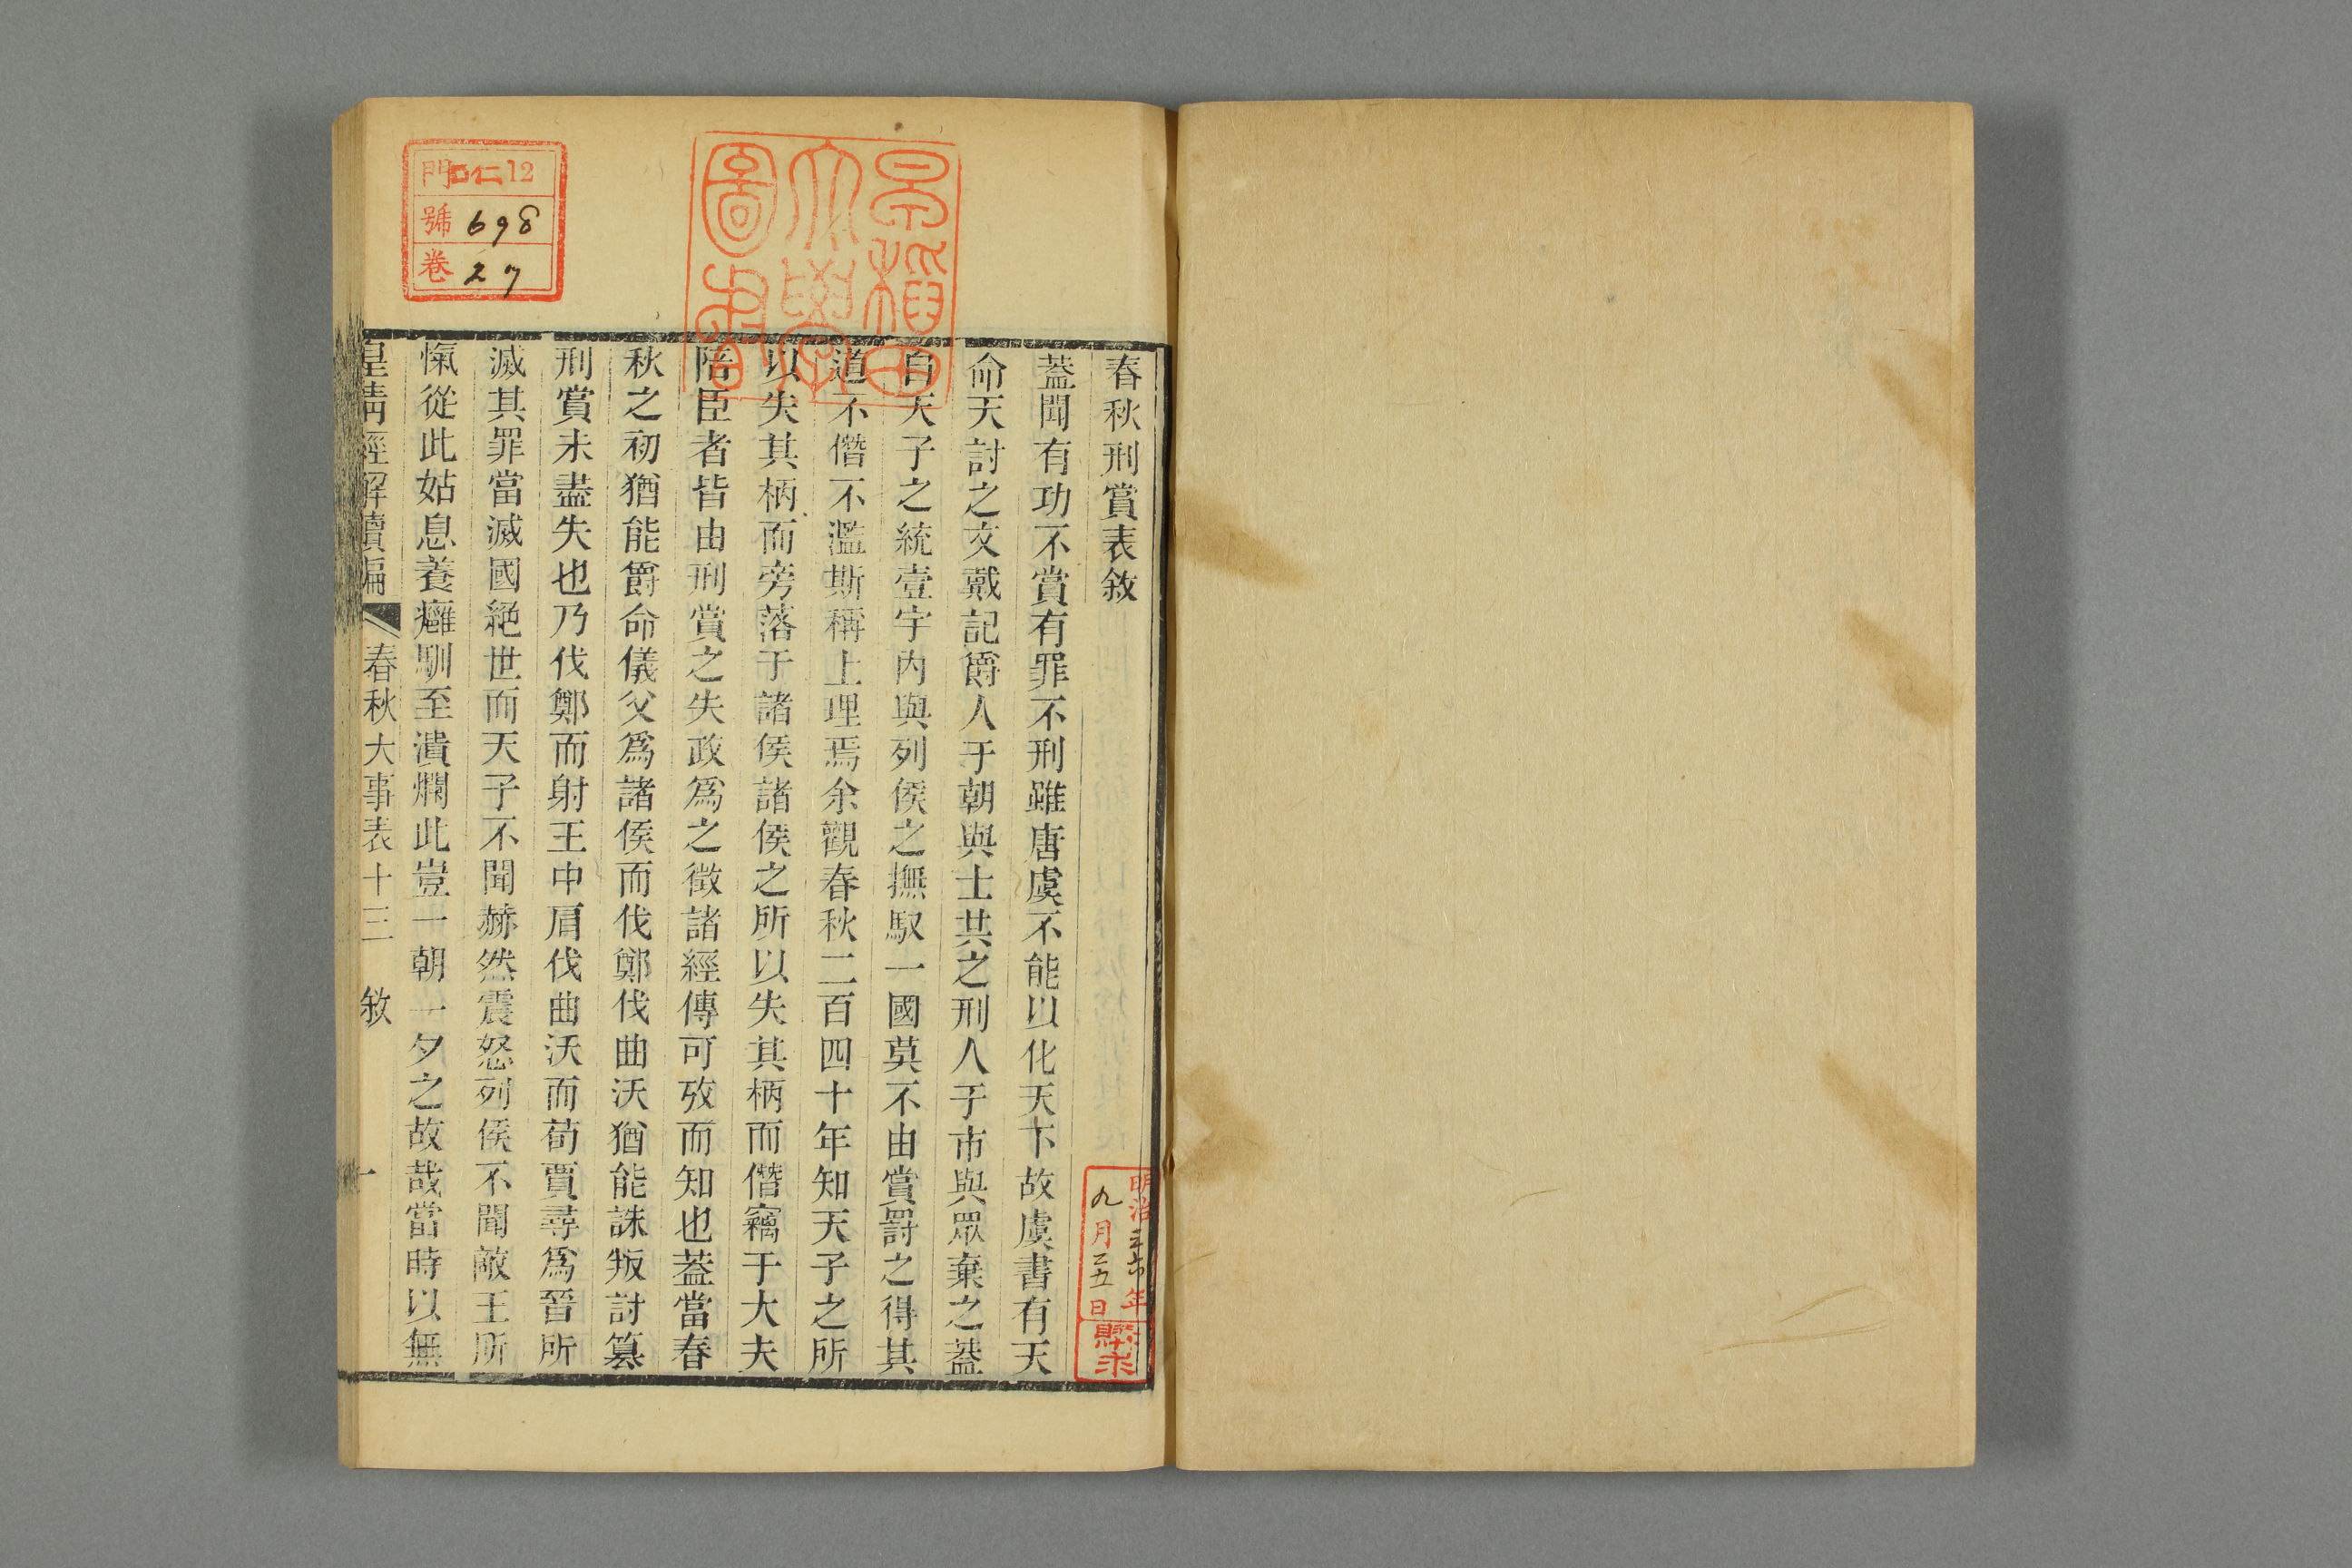 春秋刑賞表敘
蓋聞有功不賞有罪不刑雖唐虞不能以化天下故虞書有天
命天討之文戴記爵人于朝與士共之刑人于市與眾棄之蓋
自天子之統壹宇內與列侯之撫馭一國莫不由賞罰之得其
道不僭不濫斯稱上理焉余觀春秋二百四十年知天子之所
以失其柄而旁落于諸侯諸侯之所以失其柄而僭竊于大夫
陪臣者皆由刑賞之失政爲之徵諸經傳可攷而知也蓋當春
秋之初猶能爵命儀父爲諸侯而伐鄭伐曲沃猶能誅叛討簒
刑賞未盡失也乃伐鄭而射王中肩伐曲沃而荀賈尋爲晉所
滅其罪當滅國絕世而天子不聞赫然震怒列侯不聞敵王所
愾從此姑息養癰馴至潰爛此豈一朝一夕之故哉當時以無
皇清經解續編 春秋大事表十三 敘 一
門 ロ仁12
號 698
卷 27
早稻田
大學
圖書
明治三六年
九月二五日
購求